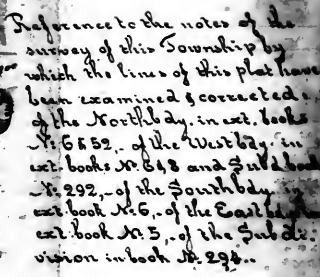 Reference to the notes of the
survey of this Township by
which the lines of this plat have
been examined & corrected.
of the North bdy. in ext. books
No. 6 & 52,. of the West bdy. in
ext. books No. 6, 8 and Subd book
No. 292,. of the South bdy. in
ext. book No. 6,. of the East bdy
ext. book No. 5,. of the Subdi-
vision in book No. 294..